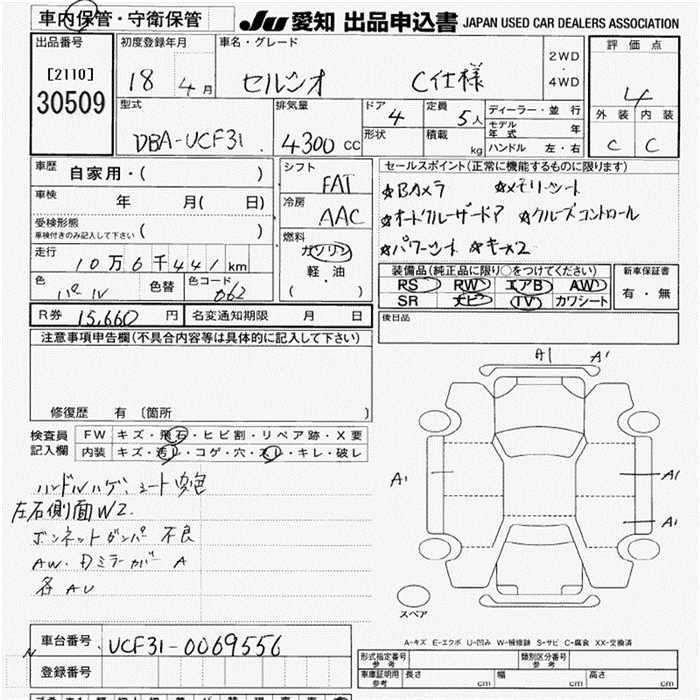 車内保管・守衛保管 JU 愛知 出品申込書 JAPAN USED CAR DEALERS ASSOCIATION
出品番号 初度登録年月 車名・グレード 2WD・4WD 評価点
[2110] 18 4月 セルシオ C仕様 4
30509 型式 排気量 ドア 4 定員 5人 ディーラー・並行 外装 内装
DBA-UCF31 4300cc 形状 積載 kg モデル年式 年 C C
ハンドル 左・右
車歴 自家用・( ) シフト FAT セールスポイント(正常に機能するものに限ります)
車検 年 月( 日) 冷房 AAC ☆Bカメラ ☆メモリーシート
受検形態 ( ) ☆オートクルーザードア ☆クルーズコントロール
車検付きのみ記入して下さい
走行 10万6千441km 燃料 ガソリン ☆パワーシート ☆キー×2
色 パール 色替 色コード 062 軽・油 ( ) 装備品(純正品に限り○をつけてください) 新車保証書
RS RW エアB AW 有・無
SR ナビ TV カワシート
R券 15,660円 名変通知期限 月 日 後日品
注意事項申告欄(不具合内容等は具体的に記入して下さい)
A1 A'
修復歴 有 〔箇所 〕
検査員 FW キズ・飛石・ヒビ割・リペア跡・X要
記入欄 内装 キズ・汚レ・コゲ・穴・スレ・キレ・破レ
A1 A1
ハンドルハゲ、シート変色
左右側面W2. A1
ボンネットダンパー不良
AW・Dミラーガバー A
各AU
スペア
A-キズ E-エクボ U-凹み W-補修跡 S-サビ C-腐食 XX-交換済
車台番号 UCF31-0069556
登録番号
形式指定番号 参考 類別区分番号 参考
車庫証明用 参考 長さ cm 幅 cm 高さ cm